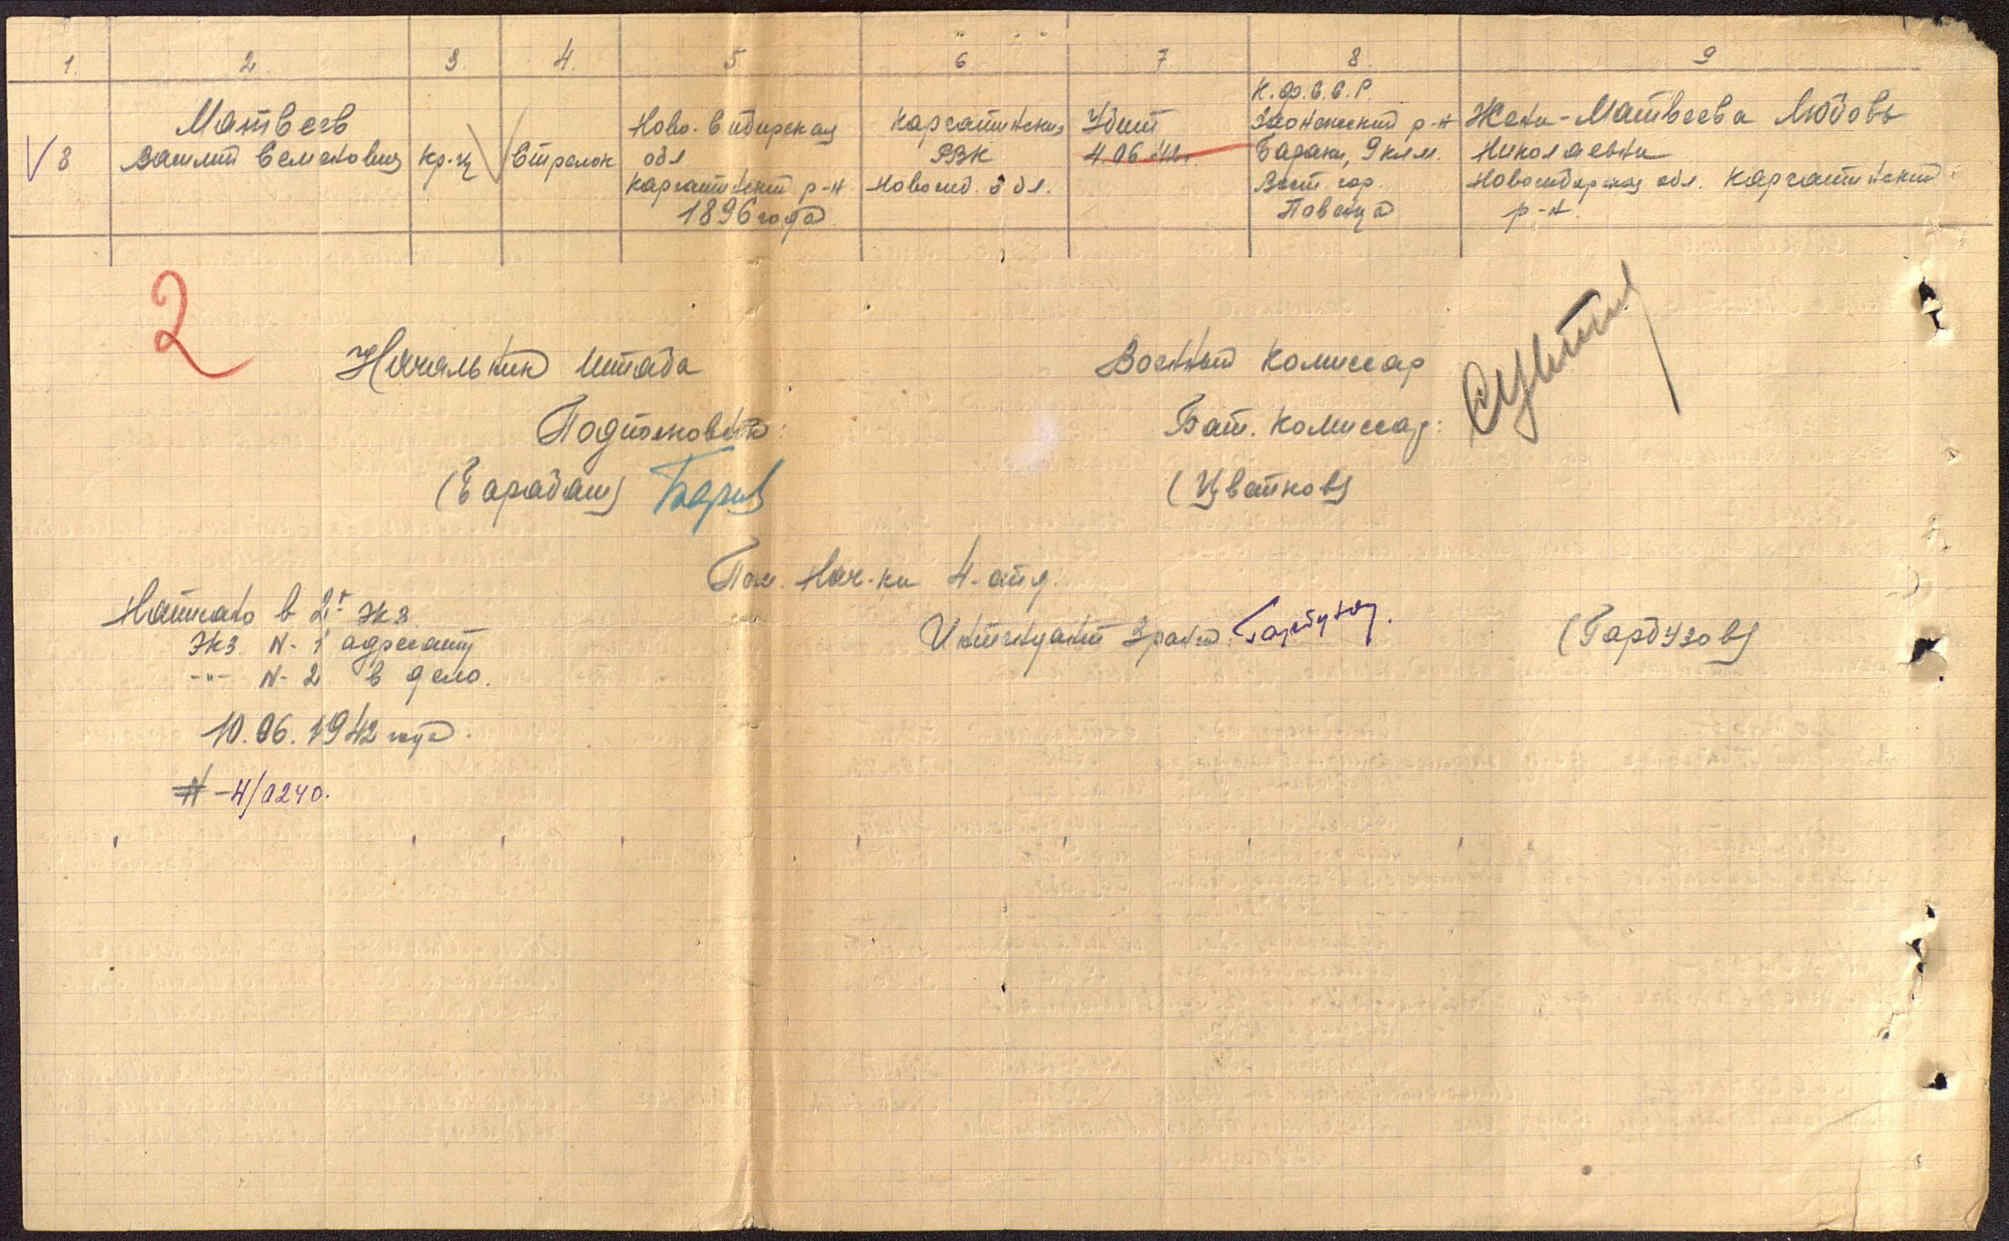 1. 2. 3. 4. 5 6. 7. 8. 9
Матвеев
Василий Семенович
V 8
кр-ц
Стрелок
Ново-Сибирская
обл
Каргатский р-н
1896 года
РВК
Новосиб. обл.
Убит
4.06.42г.
К.Ф.С.С.Р.
Заонежский р-н
9 клм.
Вост гор.
Повенца
Жена-Матвеева Любовь
Николаевна
Новосибирская обл.
р-н.
2
Начальник Штаба
Подполковник:
(Барабаш)
Военный Комиссар
Бат. Комиссар:
(Цветков)
Пом. Нач-ка 4-отд.
Интендант 3 ранга
(Гарбузов)
Написано в 2х экз
Экз. N-1 адресату
-"- N-2 в дело.
10.06.1942 года.
N-4/0240.